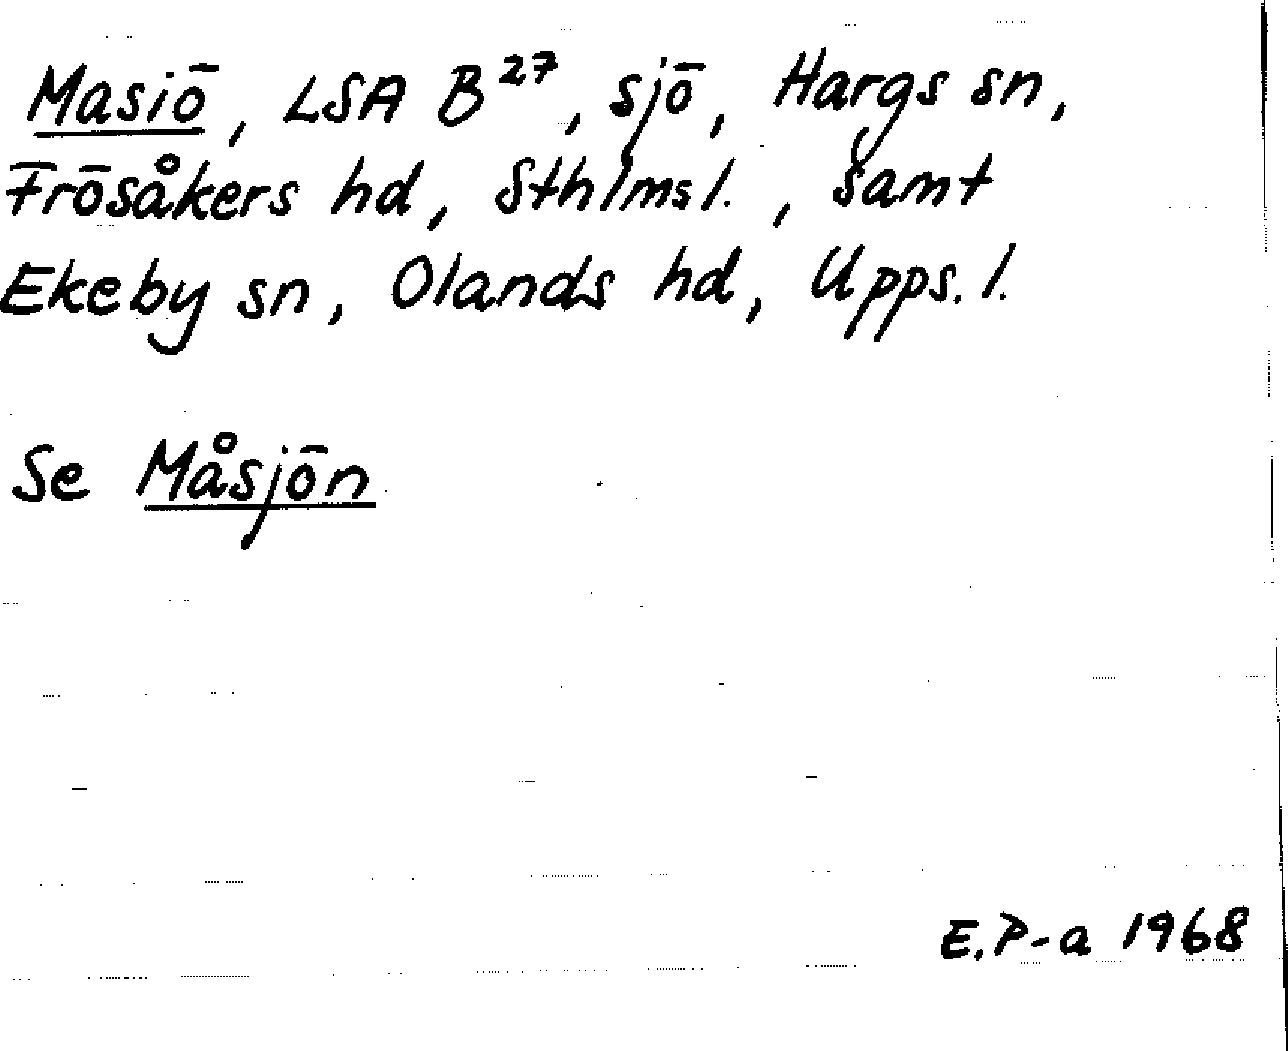 Masiö, LSA B²⁷, sjö, Hargs sn,
Frösåkers hd, Sthlms l., samt
Ekeby sn, Olands hd, Upps. l.
Se Måsjön
E.P-a 1968